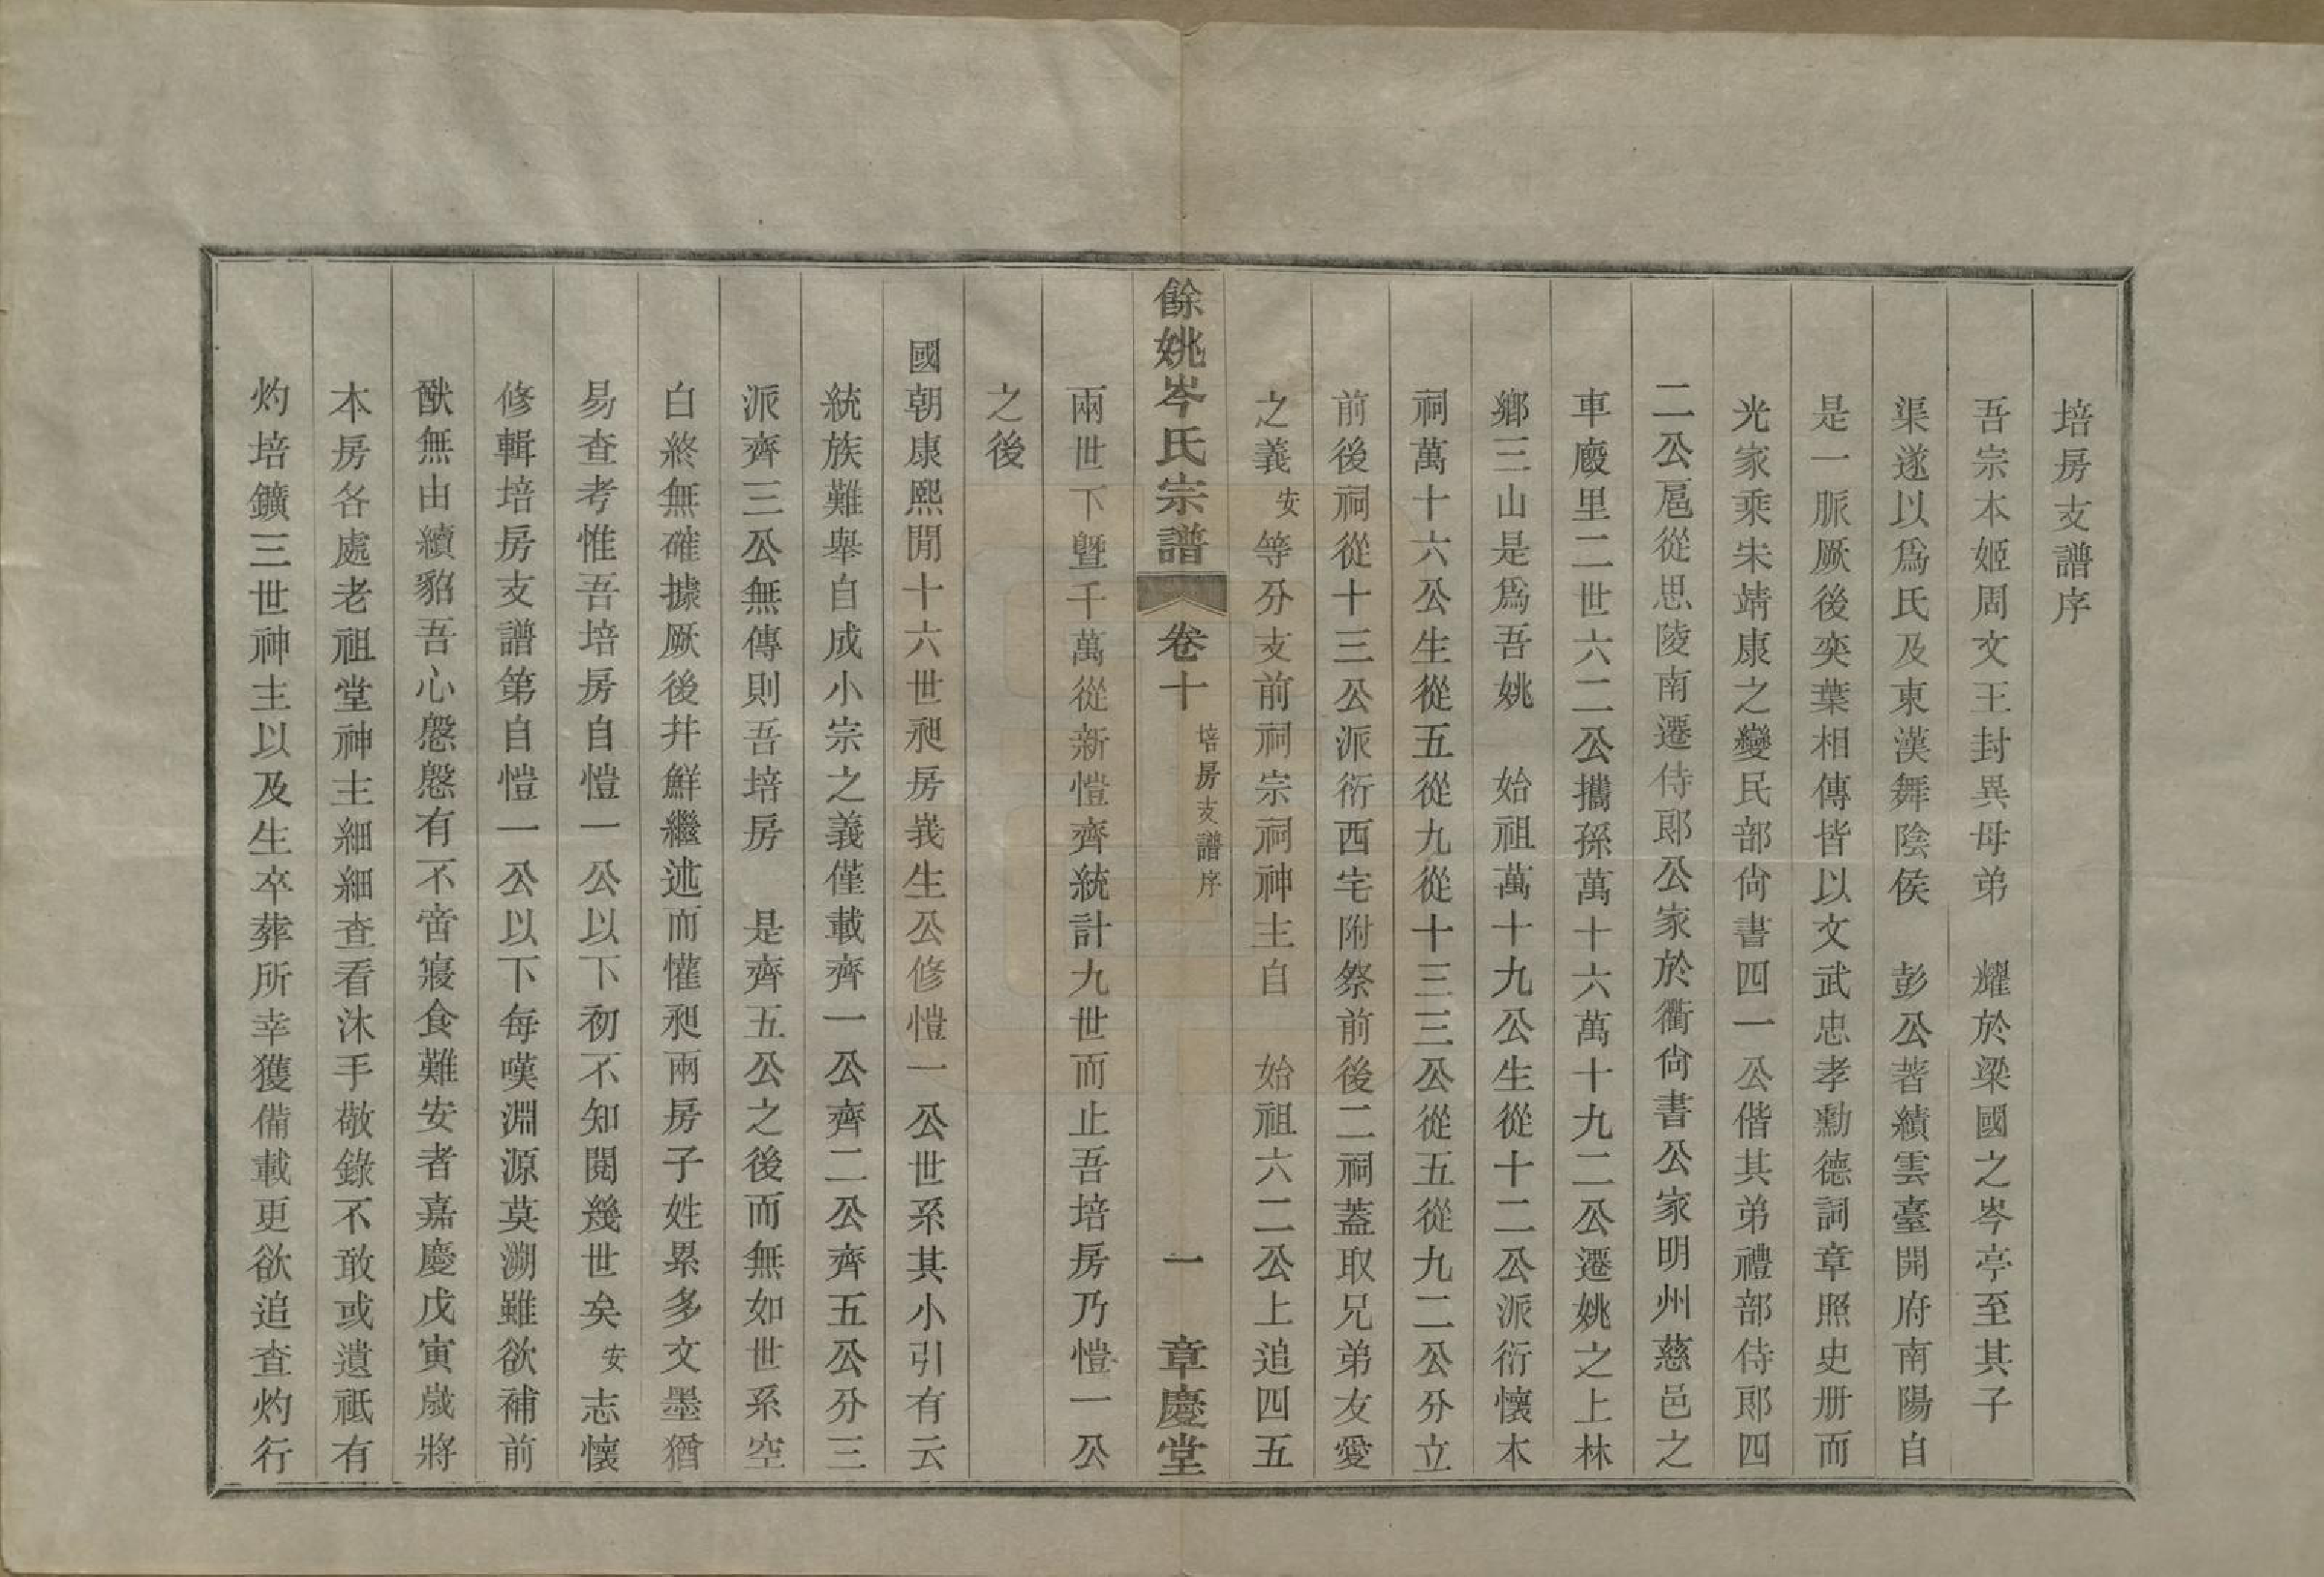 培房支譜序
吾宗本姬周文王封異母弟　耀於梁國之岑亭至其子
渠遂以爲氏及東漢舞陰侯　彭公著績雲臺開府南陽自
是一脈厥後奕葉相傳皆以文武忠孝勳德詞章照史册而
光家乘宋靖康之變民部尙書四一公偕其弟禮部侍郎四
二公扈從思陵南遷侍郎公家於衢尙書公家明州慈邑之
車廄里二世六二公攜孫萬十六萬十九二公遷姚之上林
鄉三山是爲吾姚　始祖萬十九公生從十二公派衍懷本
祠萬十六公生從五從九從十三三公從五從九二公分立
前後祠從十三公派衍西宅附祭前後二祠蓋取兄弟友愛
之義安等分支前祠宗祠神主自　始祖六二公上追四五
餘姚岑氏宗譜　卷十　培房支譜序　一　章慶堂
兩世下曁千萬從新愷齊統計九世而止吾培房乃愷一公
之後
國朝康熙閒十六世昶房峩生公修愷一公世系其小引有云
統族難舉自成小宗之義僅載齊一公齊二公齊五公分三
派齊三公無傳則吾培房　是齊五公之後而無如世系空
白終無確據厥後井鮮繼述而懽昶兩房子姓累多文墨猶
易查考惟吾培房自愷一公以下初不知閱幾世矣安志懷
修輯培房支譜第自愷一公以下每嘆淵源莫溯雖欲補前
猷無由續貂吾心慇慇有不啻寢食難安者嘉慶戊寅歲將
本房各處老祖堂神主細細查看沐手敬錄不敢或遺祇有
灼培鑛三世神主以及生卒葬所幸獲備載更欲追查灼行